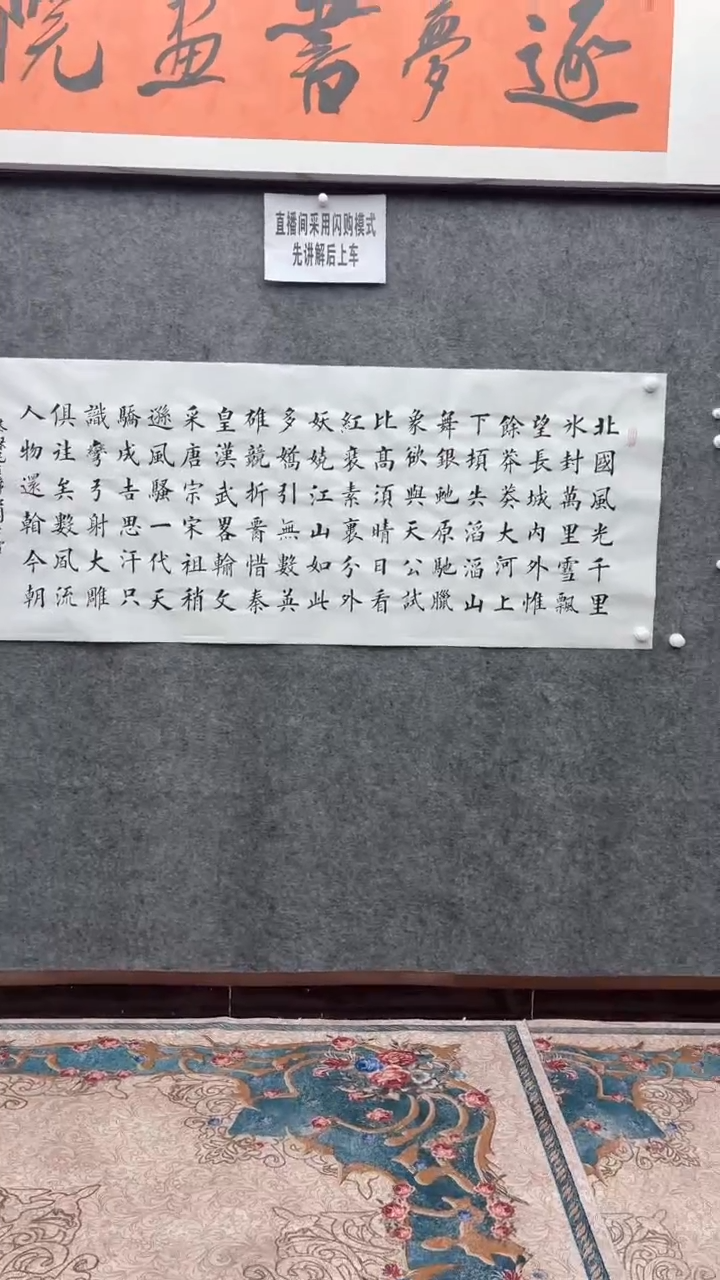 逐夢書畫院
直播间采用闪购模式
先讲解后上车
北國風光千里
氷封萬里雪飄
望長城內外惟
餘莽莽大河上
下頓失滔滔山
舞銀蛇原馳臘
象欲與天公試
比高須晴日看
紅裝素裹分外
妖嬈江山如此
多嬌引無數英
雄競折晉惜秦
皇漢武畧輸文
采唐宗宋祖稍
遜風騷一代天
驕成吉思汗只
識彎弓射大雕
俱往矣數風流
人物還看今朝